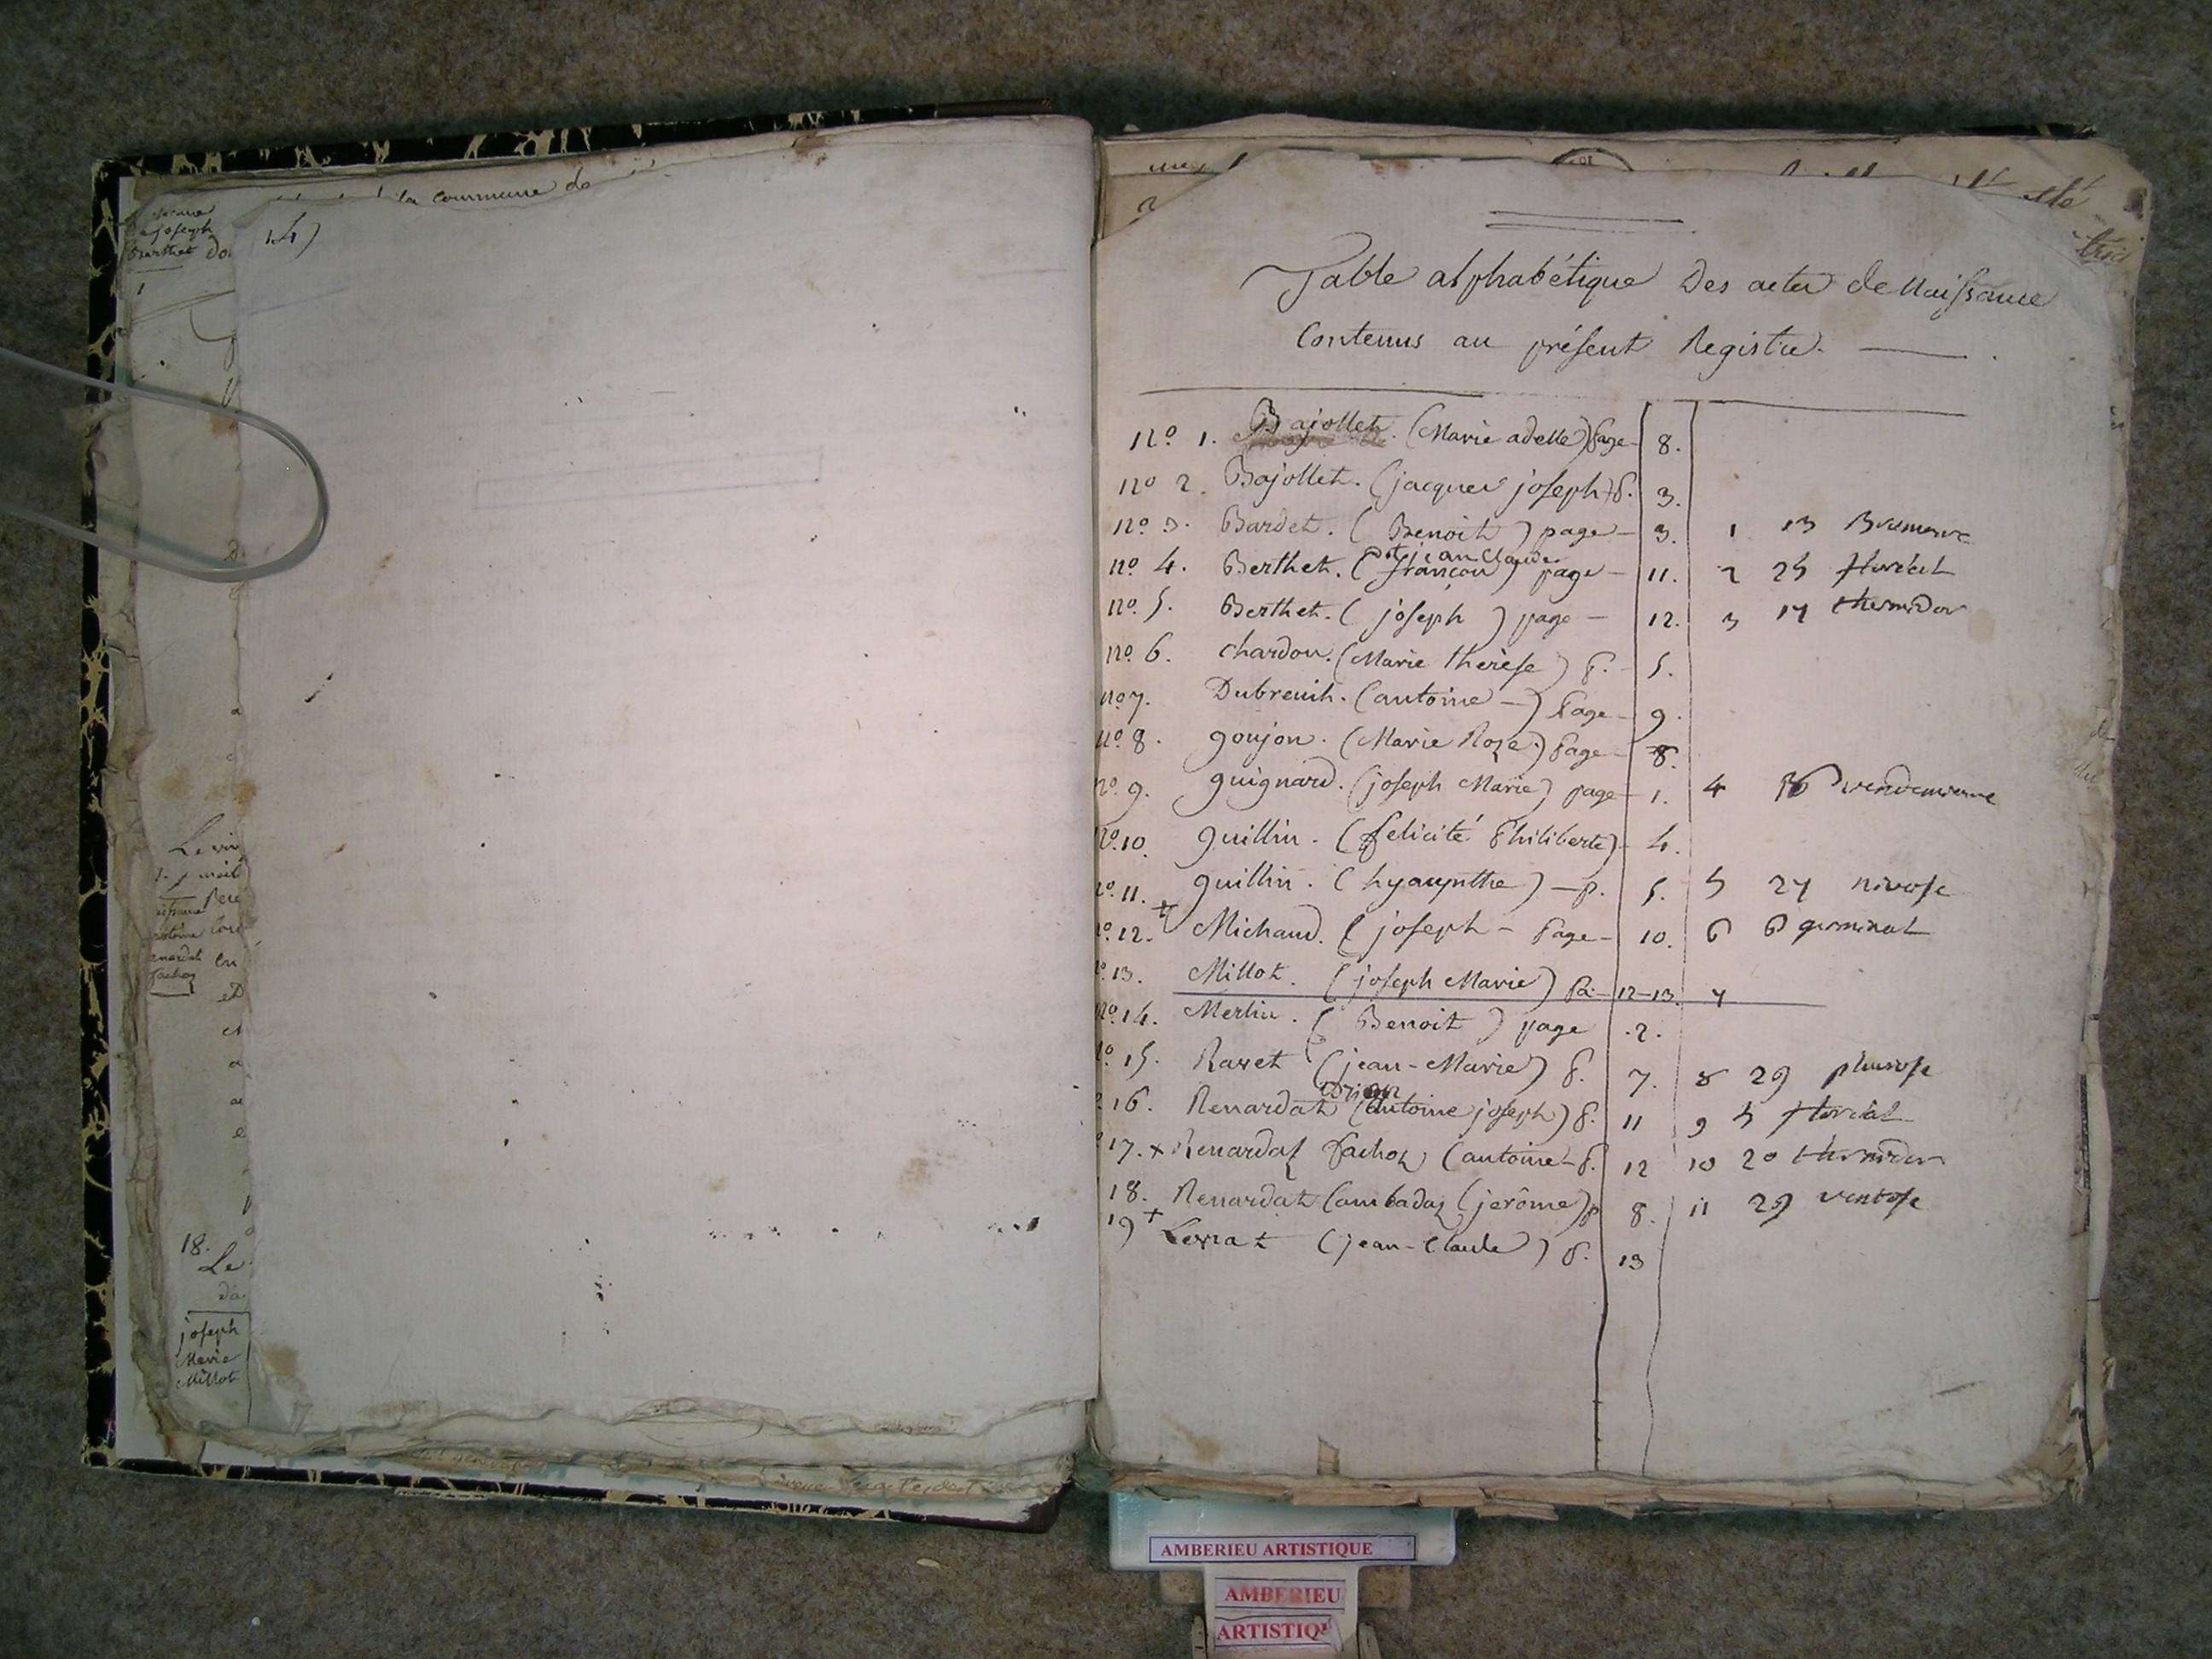 la commune de
14)
joseph
Berthet
Le
18.
Le
joseph
Marie
Millot
Table alphabétique Des actes de Naissance
Contenus au présent Registre.
no 1. Bajollet. (Marie adelle) Page 8.
no 2. Bajollet. (jacques joseph) P. 3.
no 3. Bardet. (Benoit) page 3. 1 13 Brumaire
no 4. Berthet. (jean Claude françois) page 11. 2 25 floreal
no 5. Berthet. (joseph) page 12. 3 17 thermidor
no 6. Chardon. (Marie thérèse) P. 5.
no 7. Dubreuih. (antoine) Page 9.
no 8. goujon. (Marie Roze.) Page 8.
no 9. guignard. (joseph Marie) page 1. 4 vendemiaire
no 10. guillin. (felicité Philiberte) 4.
no 11. guillin. (hyacynthe) p. 5. 5 27 nivose
no 12. + Michaud. (joseph - Page 10. 6 6 germinal
no 13. Millot. (joseph Marie) Pa. 12-13. 7
no 14. Merlin. (Benoit) page .2.
no 15. Ravet (jean-Marie) P. 7. 8 29 pluviose
16. Renardat (antoine joseph) P. 11 9 5 floreal
17. x Renardat Pachoz (antoine P. 12 10 20 thermidor
18. Renardat Cambadaz (jerôme) p 8. 11 29 ventose
19 + Levrat (jean-Claude) P. 13
AMBERIEU ARTISTIQUE
AMBERIEU
ARTISTIQU